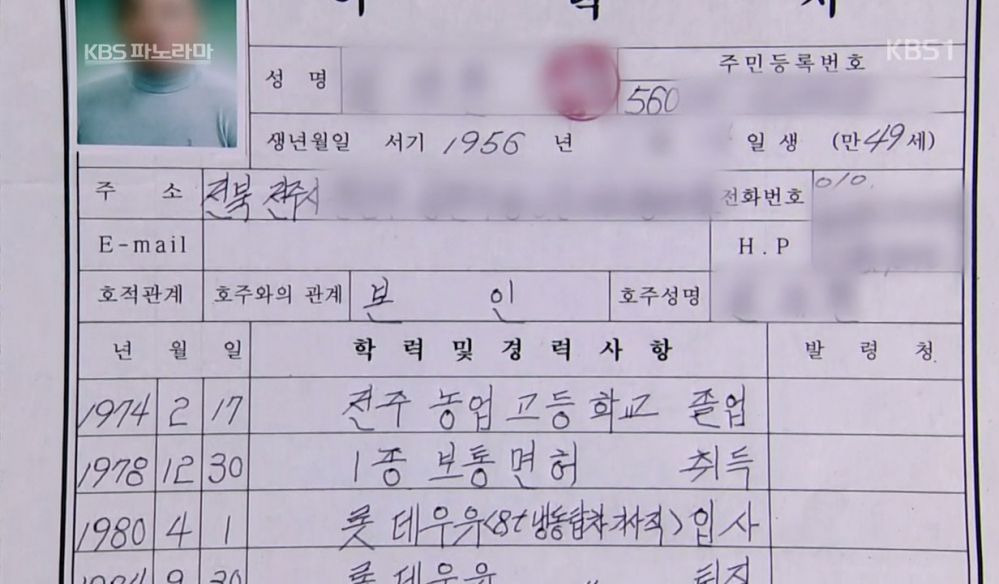 이 력 서
KBS 파노라마
KBS 1
성 명
주민등록번호
560
생년월일 서기 1956 년 일 생 (만 49 세)
주 소 전북 전주시 전화번호 010.
E-mail H.P
호적관계 호주와의 관계 본 인 호주성명
년 월 일 학 력 및 경 력 사 항 발 령 청
1974 2 17 전주 농업 고등 학교 졸업
1978 12 30 1종 보통면허 취득
1980 4 1 롯데우유(8t 냉동탑차 기사직) 입사
롯데우유 〃 퇴직